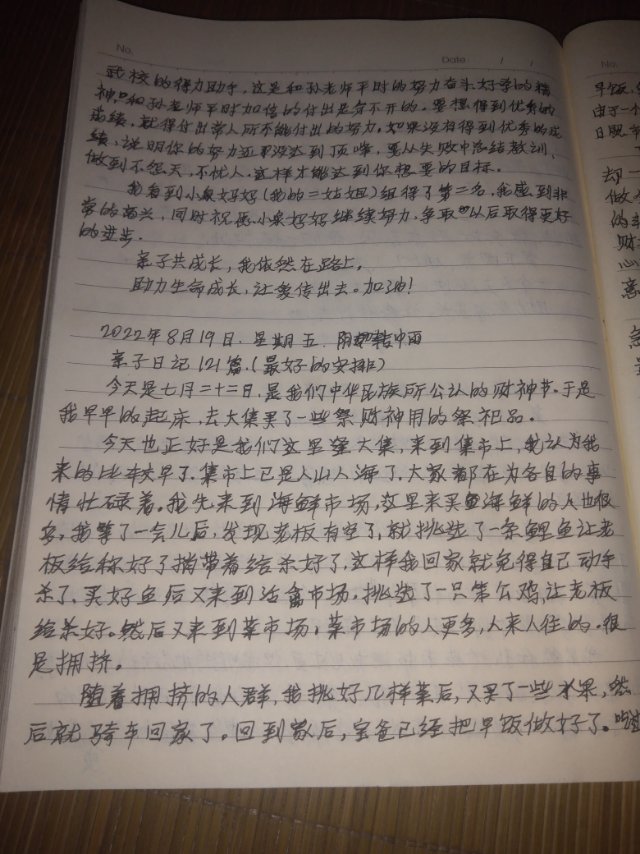 No.
Date / /
武校的得力助手，这是和孙老师平时的努力奋斗、好学的精
神，和孙老师平时加倍的付出是分不开的。要想得到优秀的
成绩，就得付出常人所不能付出的努力，如果没有得到优秀的成
绩，说明你的努力还没达到顶峰，要从失败中总结教训，
做到不怨天，不忧人，这样才能达到你想要的目标。
我看到小泉妈妈（我的二姑姐）组得了第二名，我感到非
常的高兴，同时祝愿小泉妈妈继续努力，争取以后取得更好
的进步。
亲子共成长，我依然在路上。
助力生命成长，让爱传出去。加油！
2022年8月19日. 星期五. 阴 中雨
亲子日记121篇.（最好的安排）
今天是七月二十二日，是我们中华民族所公认的财神节.于是
我早早的起床，去大集买了一些祭财神用的祭祀品。
今天也正好是我们这里逢大集，来到集市上，我认为我
来的比较早了.集市上已是人山人海了.大家都在为各自的事
情忙碌着。我先来到海鲜市场，这里来买海鲜的人也很
多，我等了一会儿后，发现老板有空了，就挑选了一条鲤鱼让老
板给称好了捎带着给杀好了.这样我回家就免得自己动手
杀了.买好鱼后又来到活禽市场.挑选了一只笨公鸡，让老板
给杀好。然后又来到菜市场，菜市场的人更多，人来人往的.很
是拥挤。
随着拥挤的人群，我挑好几样菜后，又买了一些水果，然
后就骑车回家了。回到家后，宝爸已经把早饭做好了。吃过
No.
早饭，
由于一个
日照，
却一
做
的
财
心
高